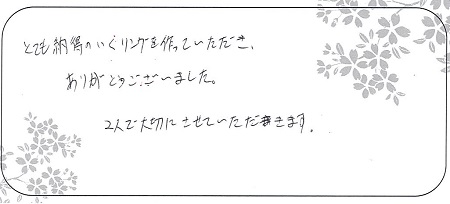 とても納得のいくリングを作っていただき、
ありがとうございました。
2人で大切にさせていただきます。